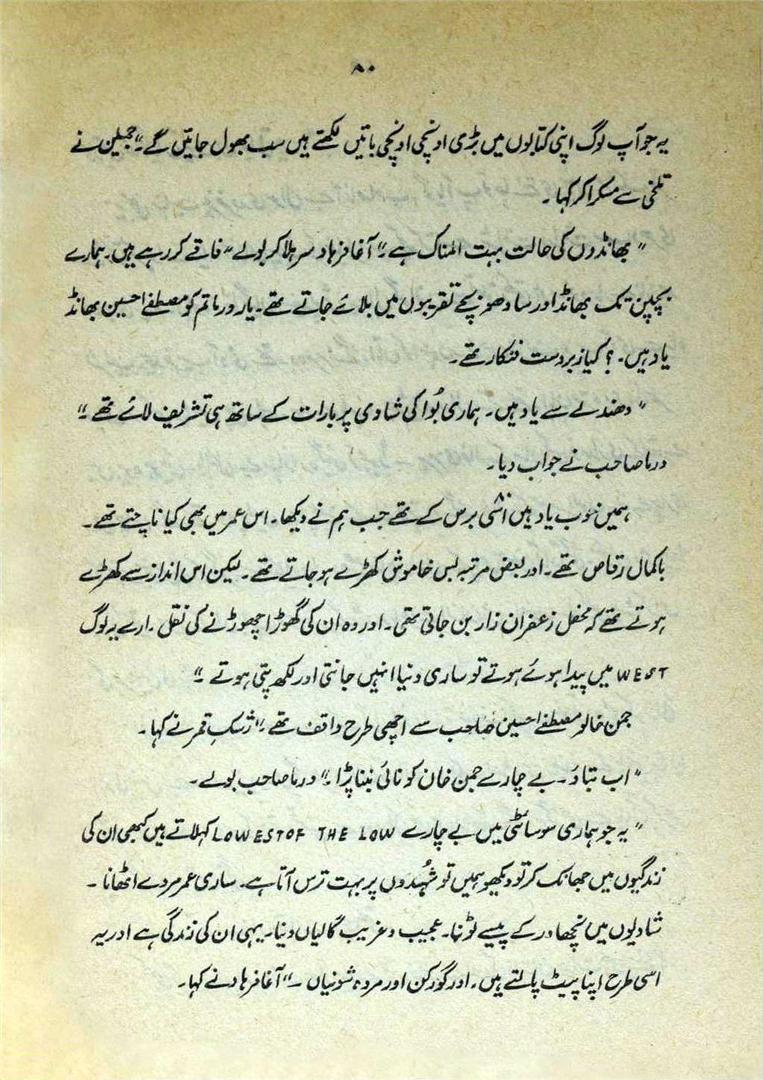 ۸۰
یہ جو آپ لوگ اپنی کتابوں میں بڑی اونچی اونچی باتیں لکھتے ہیں سب بھول جائیں گے۔" جمیلن نے
تلخی سے مسکرا کر کہا۔
" بھانڈوں کی حالت بہت المناک ہے۔" آغا فرہاد سر ہلا کر بولے " فاقے کر رہے ہیں۔ ہمارے
بچپن تک بھانڈ اور سادھو بچے تقریبوں میں بلائے جاتے تھے۔ یار ورما تم کو مصطفےٰ حسین بھانڈ
یاد ہیں۔؟ کیا زبردست فنکار تھے۔
" دھندلے سے یاد ہیں۔ ہماری بُوا کی شادی پر بارات کے ساتھ ہی تشریف لائے تھے ۔"
ورما صاحب نے جواب دیا۔
ہمیں خوب یاد ہیں اسّی برس کے تھے جب ہم نے دیکھا۔ اس عمر میں بھی کیا ناچتے تھے۔
باکمال رقاص تھے۔ اور بعض مرتبہ بس خاموش کھڑے ہو جاتے تھے۔ لیکن اس انداز سے کھڑے
ہوتے تھے کہ محفل زعفران زار بن جاتی تھی۔ اور وہ ان کی گھوڑا چھوڑنے کی نقل۔ ارے یہ لوگ
WEST میں پیدا ہوئے ہوتے تو ساری دنیا انہیں جانتی اور لکھ پتی ہوتے ۔"
جمن خالو مصطفےٰ حسین صاحب سے اچھی طرح واقف تھے۔" رشکِ قمر نے کہا۔
" اب بتاؤ۔ بے چارے جمن خان کو نائی بننا پڑا۔" ورما صاحب بولے۔
" یہ جو ہماری سوسائٹی میں بے چارے LOWEST OF THE LOW کہلاتے ہیں کبھی ان کی
زندگیوں میں جھانک کر تو دیکھو ہمیں تو شہدوں پر بہت ترس آتا ہے۔ ساری عمر مردے اٹھانا ۔
شادیوں میں نچھاور کے پیسے لوٹنا۔ عجیب و غریب گالیاں دینا۔ یہی ان کی زندگی ہے اور یہ
اسی طرح اپنا پیٹ پالتے ہیں۔ اور گورکن اور مردہ شونیاں ۔" آغا فرہاد نے کہا۔